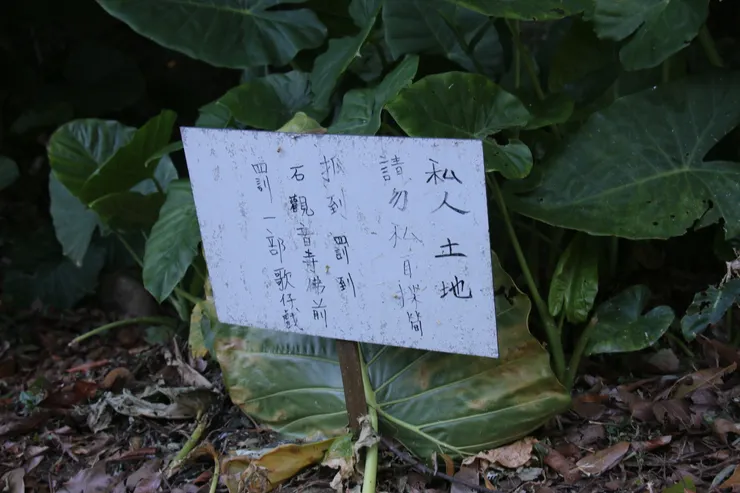 私人土地
請勿私自採筍
抓到罰到
石觀音寺佛前
罰一部歌仔戲